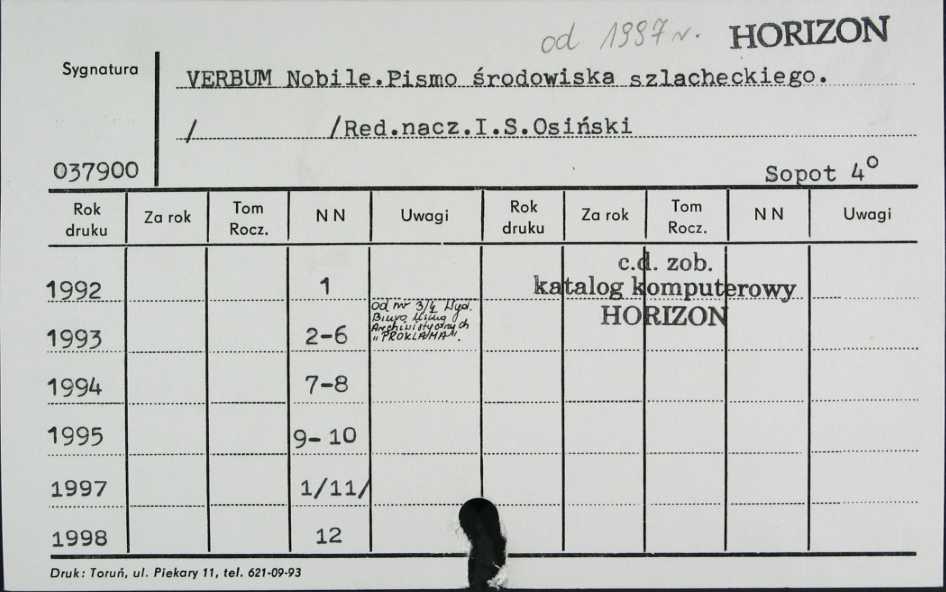 od 1997 r. HORIZON
Sygnatura
VERBUM Nobile.Pismo środowiska szlacheckiego.
/ /Red.nacz.I.S.Osiński
037900
Sopot 4°
Rok druku Za rok Tom Rocz. NN Uwagi Rok druku Za rok Tom Rocz. NN Uwagi
c.d. zob.
katalog komputerowy
HORIZON
1992 1
od nr 3/4 Wyd.
Biuro
Archiwistycznych
"PROKLAMA".
1993 2-6
1994 7-8
1995 9-10
1997 1/11/
1998 12
Druk: Toruń, ul. Piekary 11, tel. 621-09-93